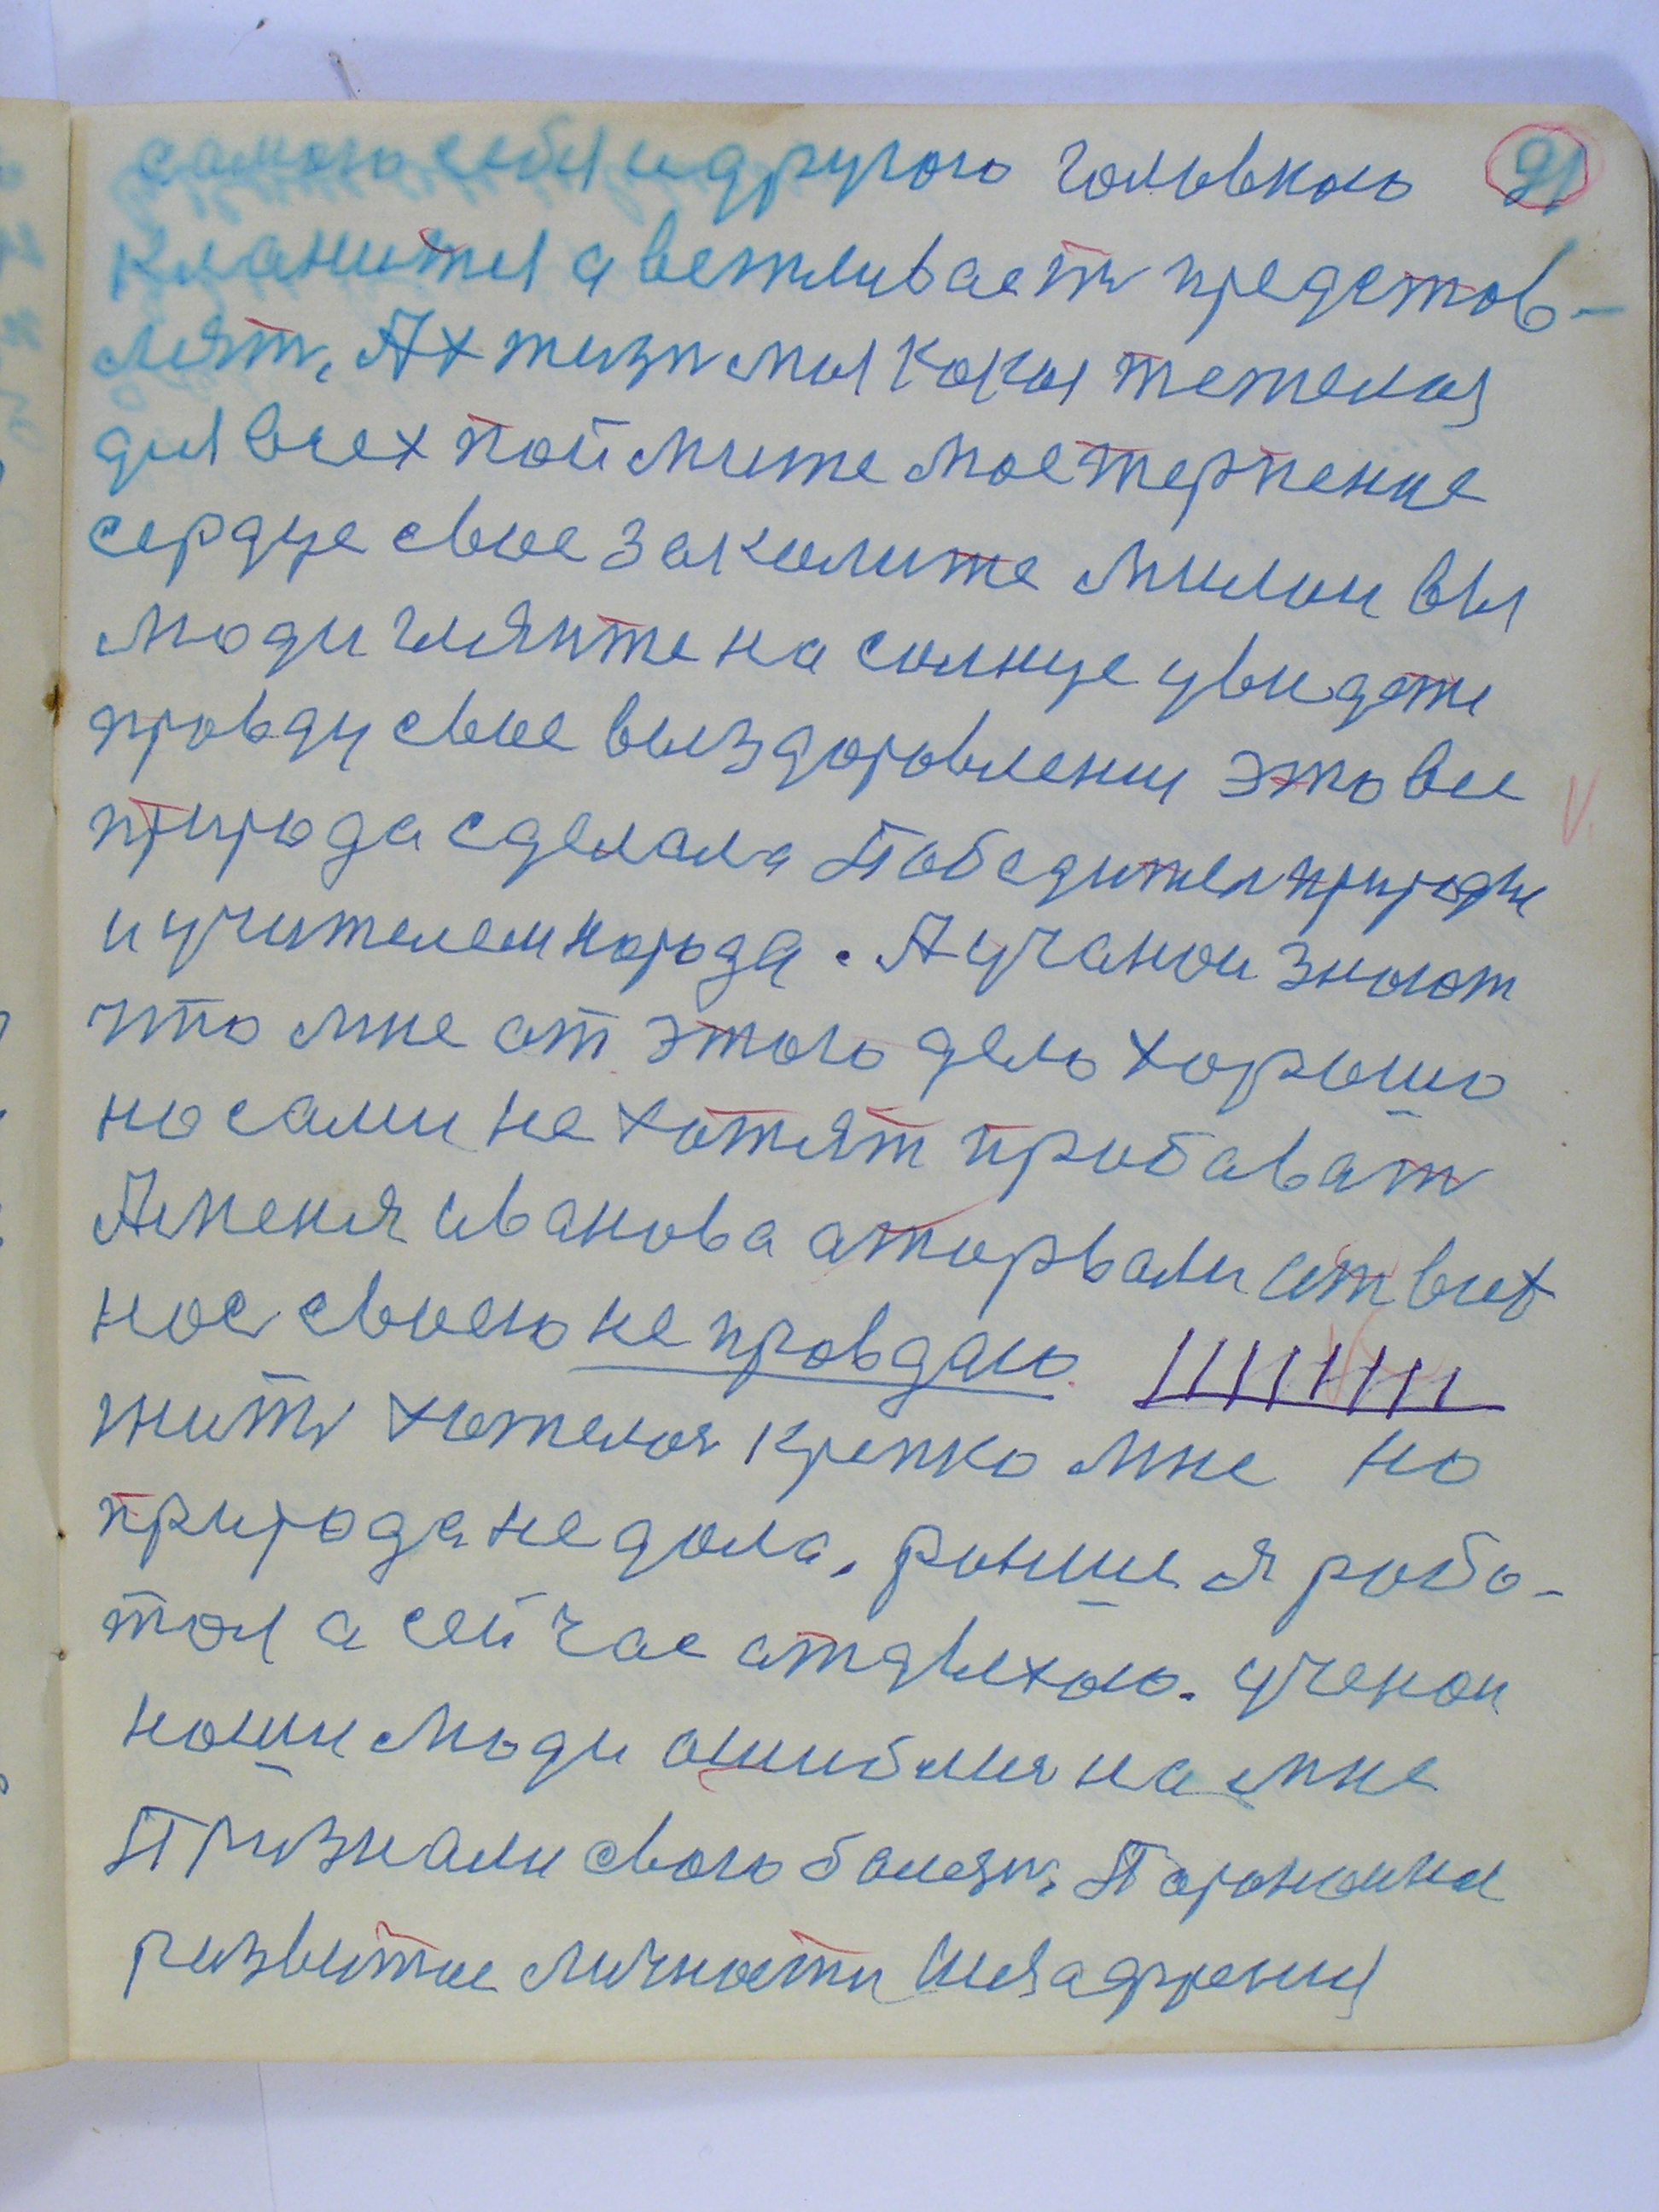 самого себя и другого головкою 91
кланится а ветливает предстов-
лят. Ах жизн моя кокоя тежелоя
для всех поймите мое терпение
сердце свое заколите милои вы
люди гляньте на солнце увидете
провду свое выздоровления это все
природа сделала Победител природы
и учителем народа. А учанои знают
что мне от этого дело хорошо
но сами не хотят пробават
А меня иванова аторвали от всех
нос своею не провдаю
жить хотелося крепко мне но
природа не дола. ронше я робо-
тол а сейчас отдыхою. ученои
ноши люди ошиблися на мне
Признали свою болезнь, Паронойная
развитие личности Шизафрения